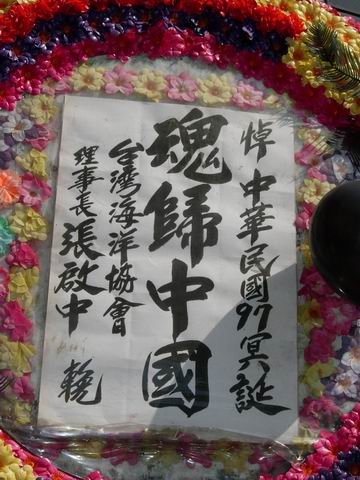 悼中華民國97冥誕
魂歸中國
台灣海洋協會
理事長張啟中 輓